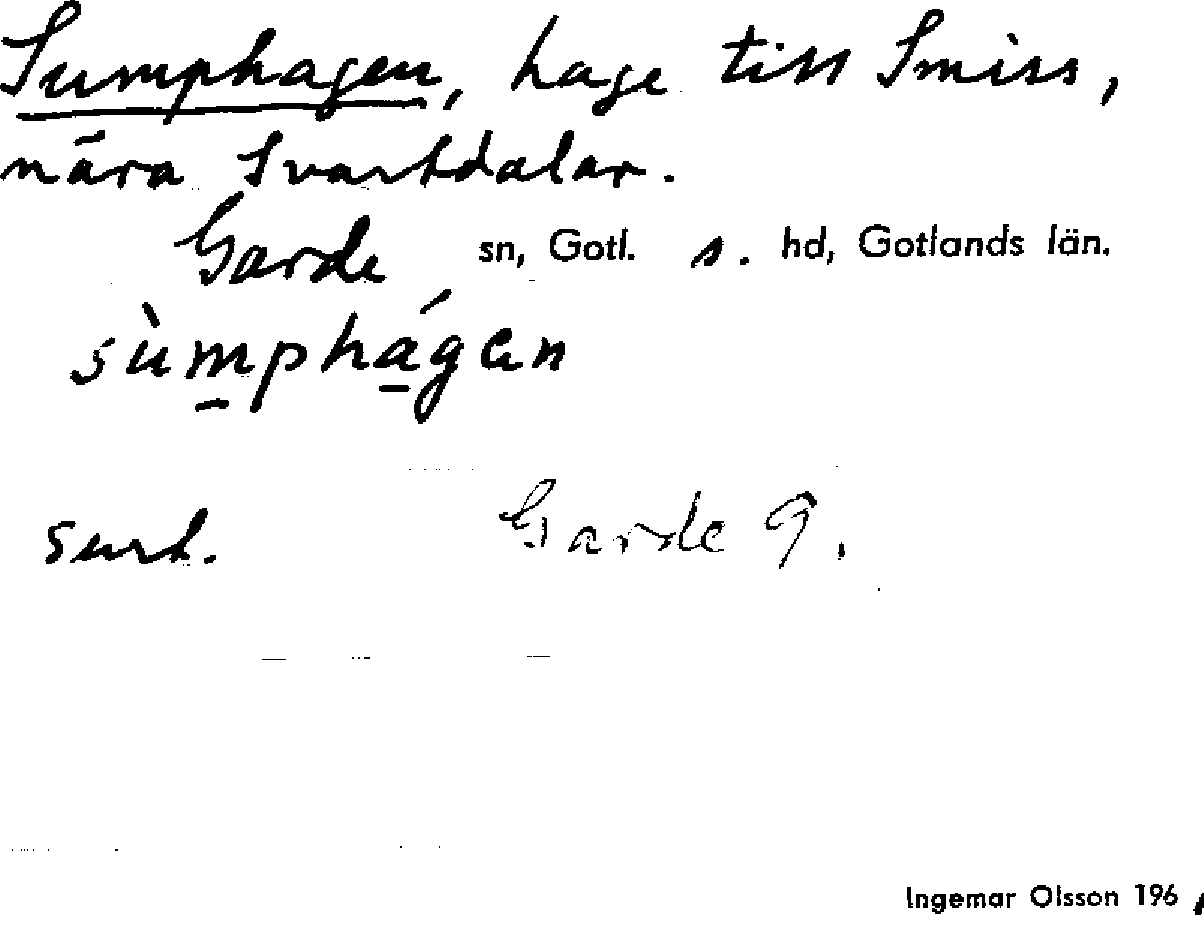 Sumphagen, hage till Smiss,
nära Svartdalar.
Garde sn, Gotl. s. hd, Gotlands län.
sùmphágen
surt. Garde 9.
Ingemar Olsson 196